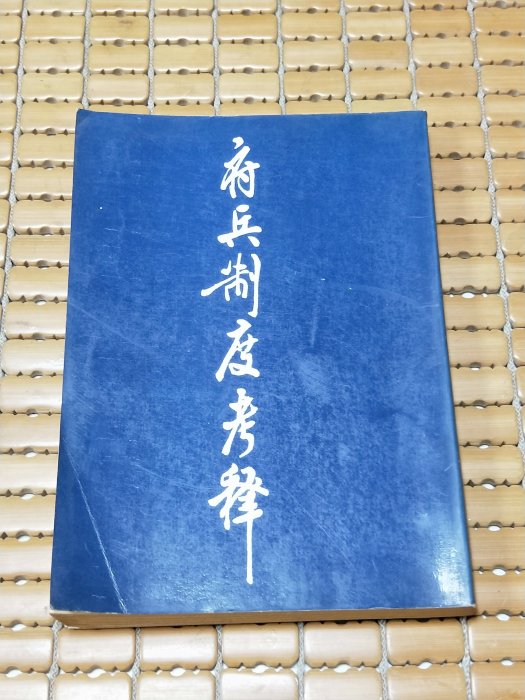 府兵制度考释